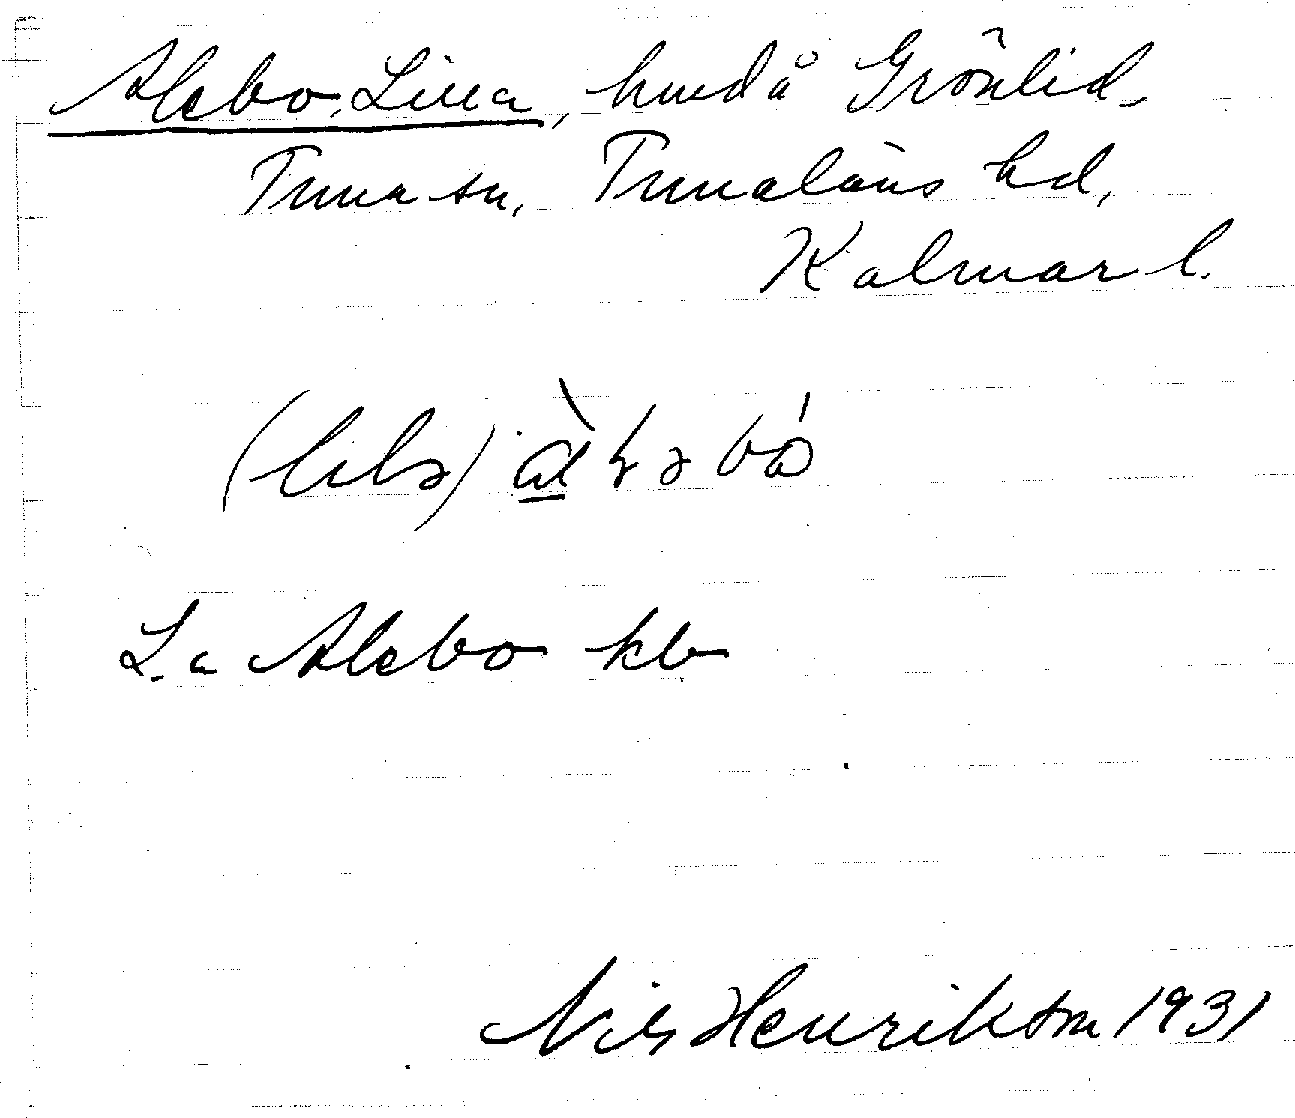 Alebo, Lilla, hmd å Grönlid
Tuna sn, Tunaläns hd,
Kalmar l.
L:a Alebo kb
Nils Henrikson 1931